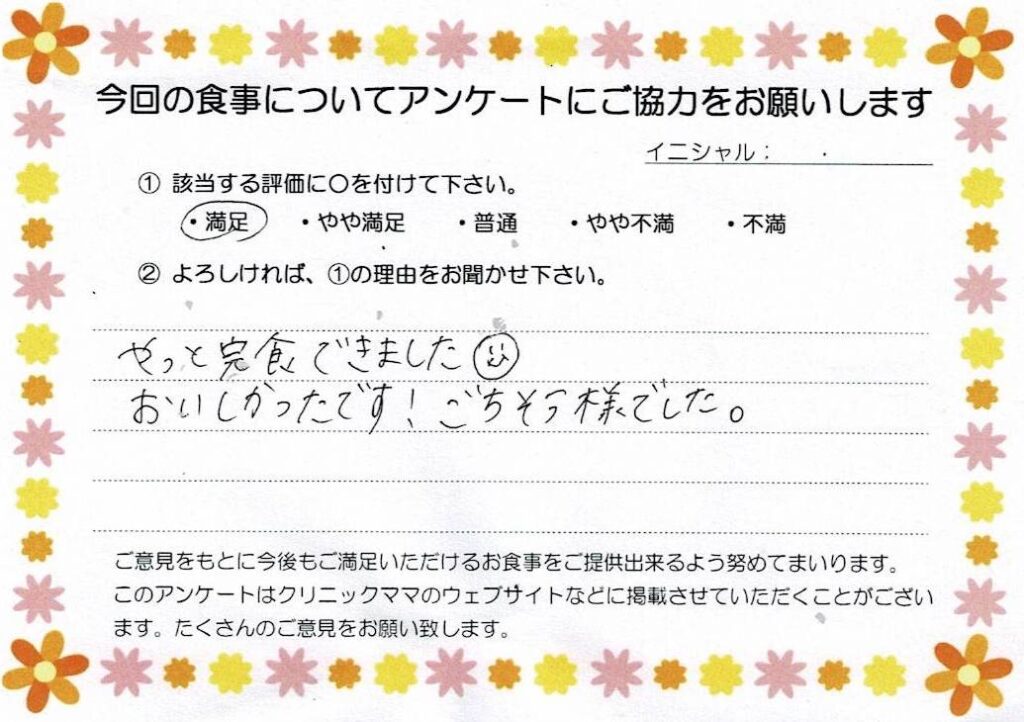 今回の食事についてアンケートにご協力をお願いします
イニシャル： ．
① 該当する評価に〇を付けて下さい。
・満足 ・やや満足 ・普通 ・やや不満 ・不満
② よろしければ、①の理由をお聞かせ下さい。
やっと完食できました
おいしかったです！ごちそう様でした。
ご意見をもとに今後もご満足いただけるお食事をご提供出来るよう努めてまいります。
このアンケートはクリニックママのウェブサイトなどに掲載させていただくことがござい
ます。たくさんのご意見をお願い致します。